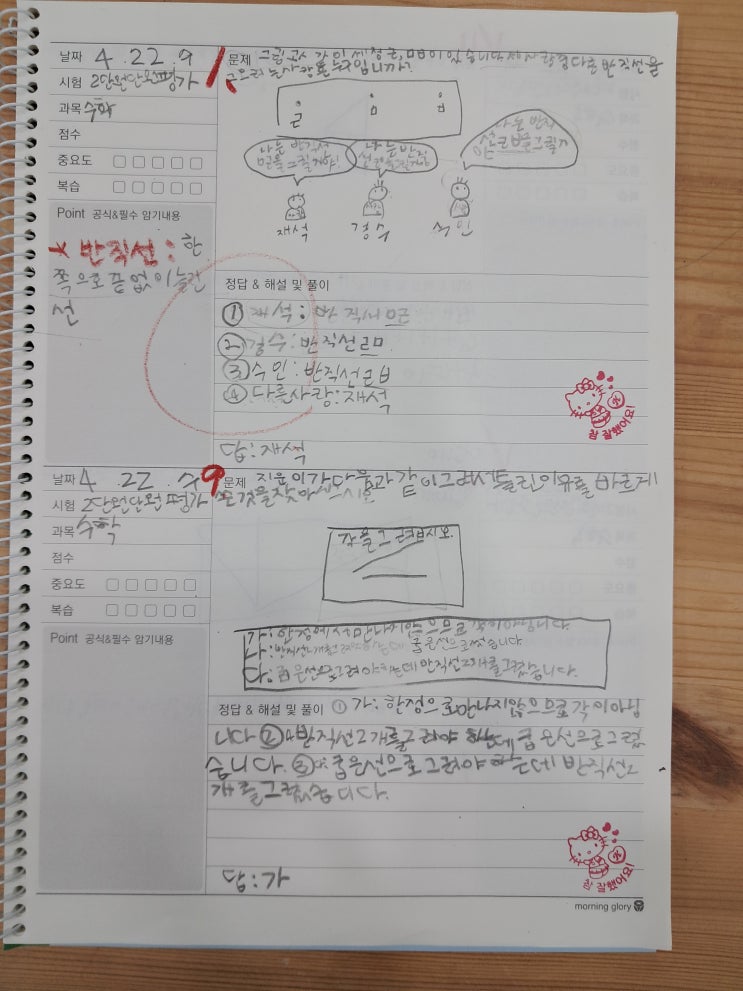 날짜 4.22.수
시험 2단원단원평가
과목 수학
점수
중요도
복습
Point 공식&필수 암기내용
* 반직선 : 한
쪽으로 끝없이 늘린
선
1 문제 그림 같이 세 점 ㄹ, ㅁ, ㅂ이 있습니다 다른 반직선을
그리는 사람은 누구입니까?
ㄹ ㅁ ㅂ
나는 반직선
ㅁㄹ을 그릴거야!
나는 반직
선 ㄹㅁ
나는 반직
선 ㄹㅂ을 그릴
재석 경수 수인
정답 & 해설 및 풀이
① 재석 : 반직선 ㅁㄹ
② 경수 : 반직선 ㄹㅁ.
③ 수인 : 반직선 ㄹㅂ
④ 다른사람 : 재석
답 : 재석
참 잘했어요!
날짜 4.22.수
시험 2단원단원평가
과목 수학
점수
중요도
복습
Point 공식&필수 암기내용
9 문제 지윤이가 다음과 같이 그려서 틀린 이유를 바르게
쓴 것을 찾아 쓰시오
각을 그려보시오.
가 : 한점에서 만나지 않으므로 각이 아닙니다.
나 : 반직선2개를 그려야 하는데 굽은선으로 썼습니다
다 : 굽은선으로 그려야 하는데 반직선2개를 그렸습니다.
정답 & 해설 및 풀이 ① 가 : 한점으로 만나지않으므로 각이아닙
니다 ② 나 반직선2개를 그려야 하는데 굽은선으로 그렸
습니다. ③ 다 굽은선으로 그려야 하는데 반직선2
개를 그렸습니다.
답 : 가
참 잘했어요!
morning glory